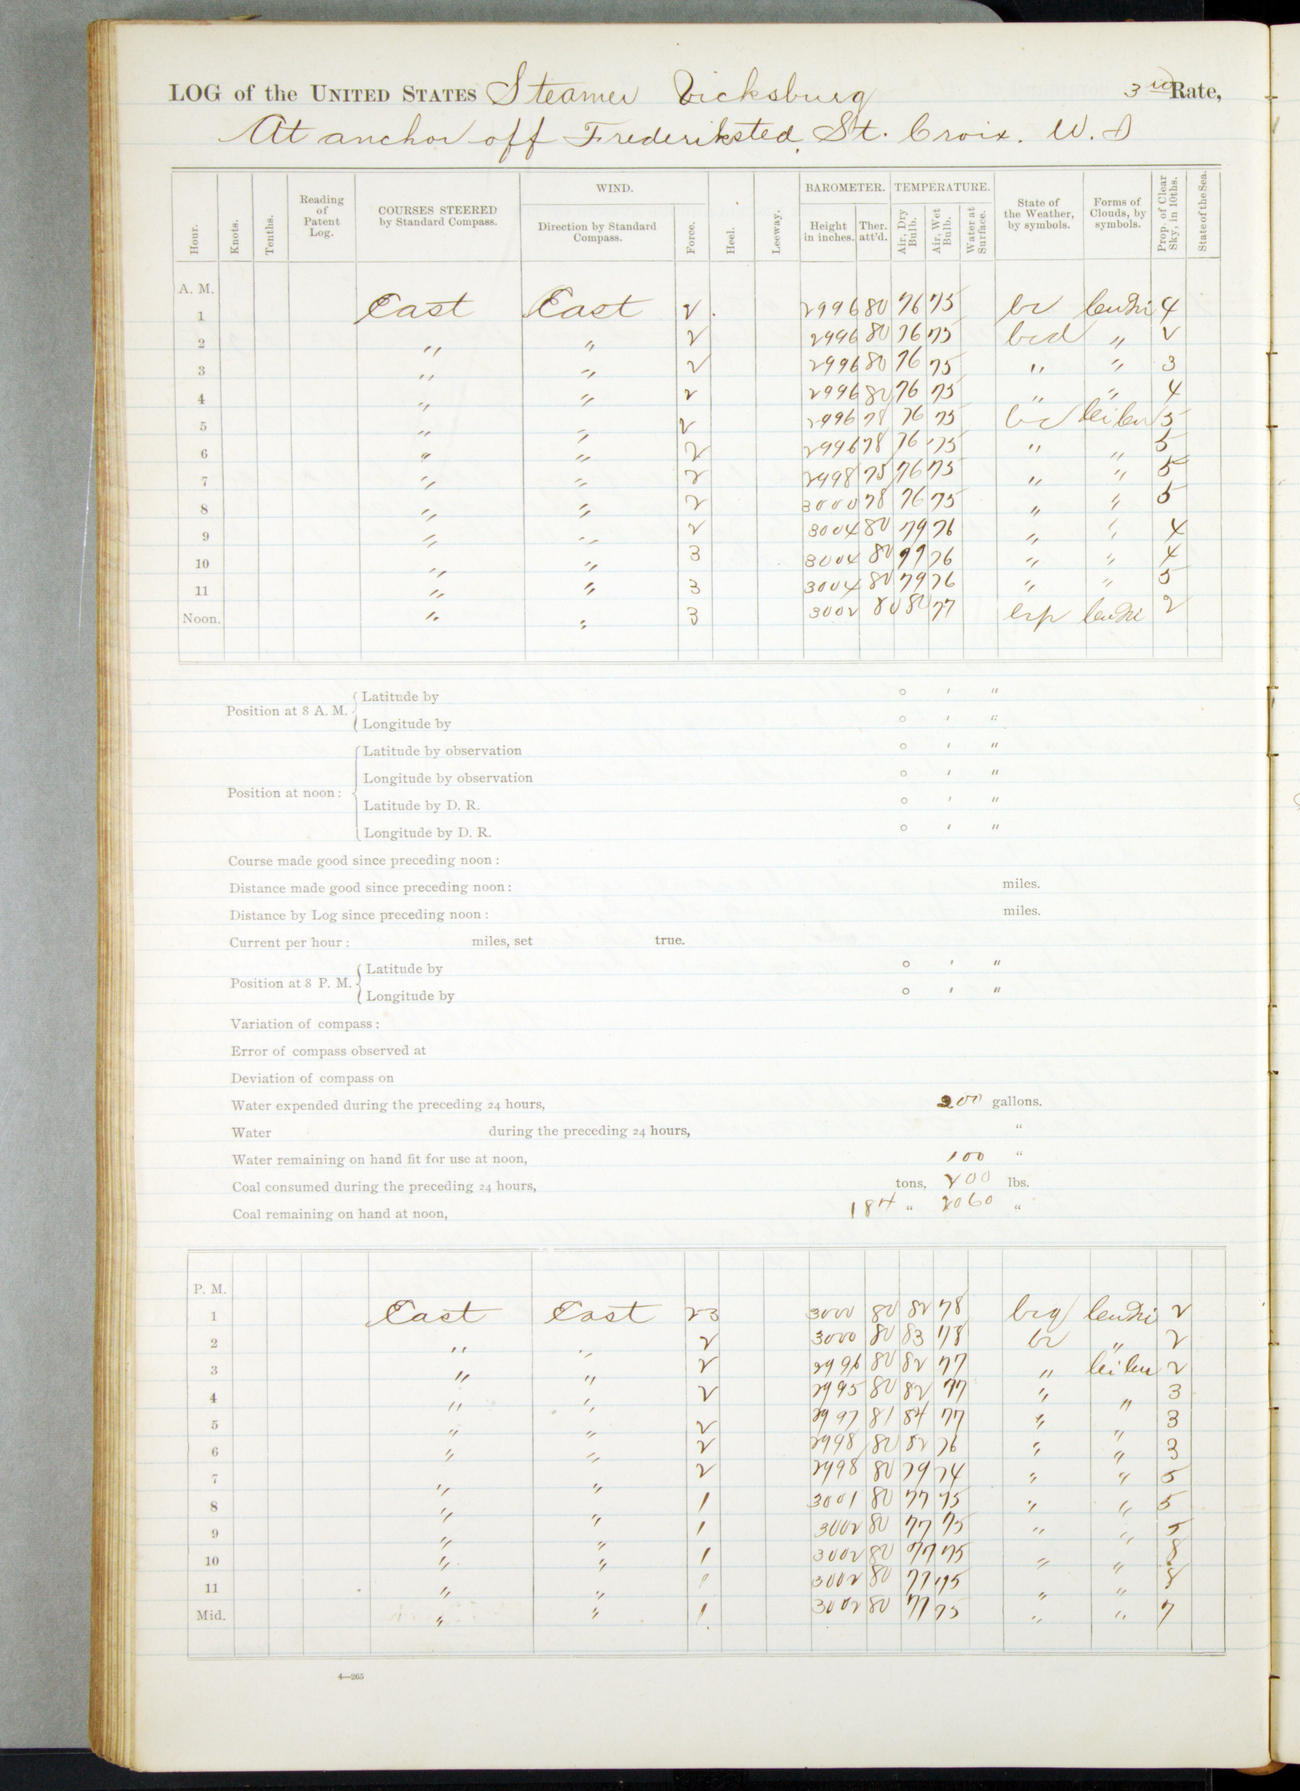 LOG of the UNITED STATES Steamer Vicksburg 3rd Rate,
At anchor off Frederiksted, St. Croix. W. I
Hour. Knots. Tenths. Reading of Patent Log. COURSES STEERED by Standard Compass. WIND. Direction by Standard Compass. Force. Heel. Leeway. BAROMETER. Height in inches. Ther. att'd. TEMPERATURE. Air, Dry Bulb. Air, Wet Bulb. Water at Surface. State of the Weather, by symbols. Forms of Clouds, by symbols. Prop. of Clear Sky, in 10ths. State of the Sea.
A. M.
1 East East 2 2996 80 76 75 bc 4
2 " " 2 2996 80 76 75 bcd " 2
3 " " 2 2996 80 76 75 " " 3
4 " " 2 2996 80 76 75 " " 4
5 " " 2 2996 78 76 75 bc 5
6 " " 2 2996 78 76 75 " " 5
7 " " 2 2998 75 76 75 " " 5
8 " " 2 3000 78 76 75 " " 5
9 " " 2 3004 80 79 76 " " 4
10 " " 3 3004 80 79 76 " " 4
11 " " 3 3004 80 79 76 " " 5
Noon. " " 3 3002 80 80 77 2
Position at 8 A. M. Latitude by ° ' "
Longitude by ° ' "
Position at noon: Latitude by observation ° ' "
Longitude by observation ° ' "
Latitude by D. R. ° ' "
Longitude by D. R. ° ' "
Course made good since preceding noon:
Distance made good since preceding noon: miles.
Distance by Log since preceding noon: miles.
Current per hour: miles, set true.
Position at 8 P. M. Latitude by ° ' "
Longitude by ° ' "
Variation of compass:
Error of compass observed at
Deviation of compass on
Water expended during the preceding 24 hours, 200 gallons.
Water during the preceding 24 hours, "
Water remaining on hand fit for use at noon, 100 "
Coal consumed during the preceding 24 hours, tons, 200 lbs.
Coal remaining on hand at noon, 184 " 2060 "
P. M.
1 East East 23 3000 80 82 78 2
2 " " 2 3000 80 83 78 bc " 2
3 " " 2 2996 80 82 77 " 2
4 " " 2 2995 80 82 77 " " 3
5 " " 2 2997 81 84 77 " " 3
6 " " 2 2998 80 82 76 " " 3
7 " " 2 2998 80 79 74 " " 5
8 " " 1 3001 80 77 75 " " 5
9 " " 1 3002 80 77 75 " " 5
10 " " 1 3002 80 77 75 " " 8
11 " " 1 3002 80 77 75 " " 8
Mid. " " 1 3002 80 77 75 " " 7
4—265